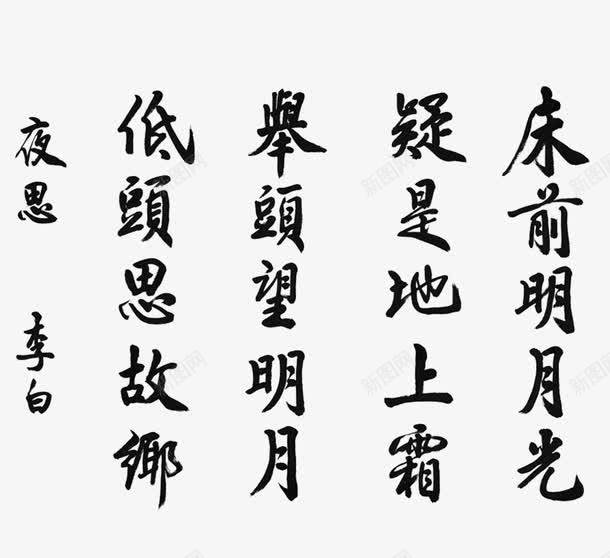 床前明月光
疑是地上霜
舉頭望明月
低頭思故鄉
夜思 李白
新图网